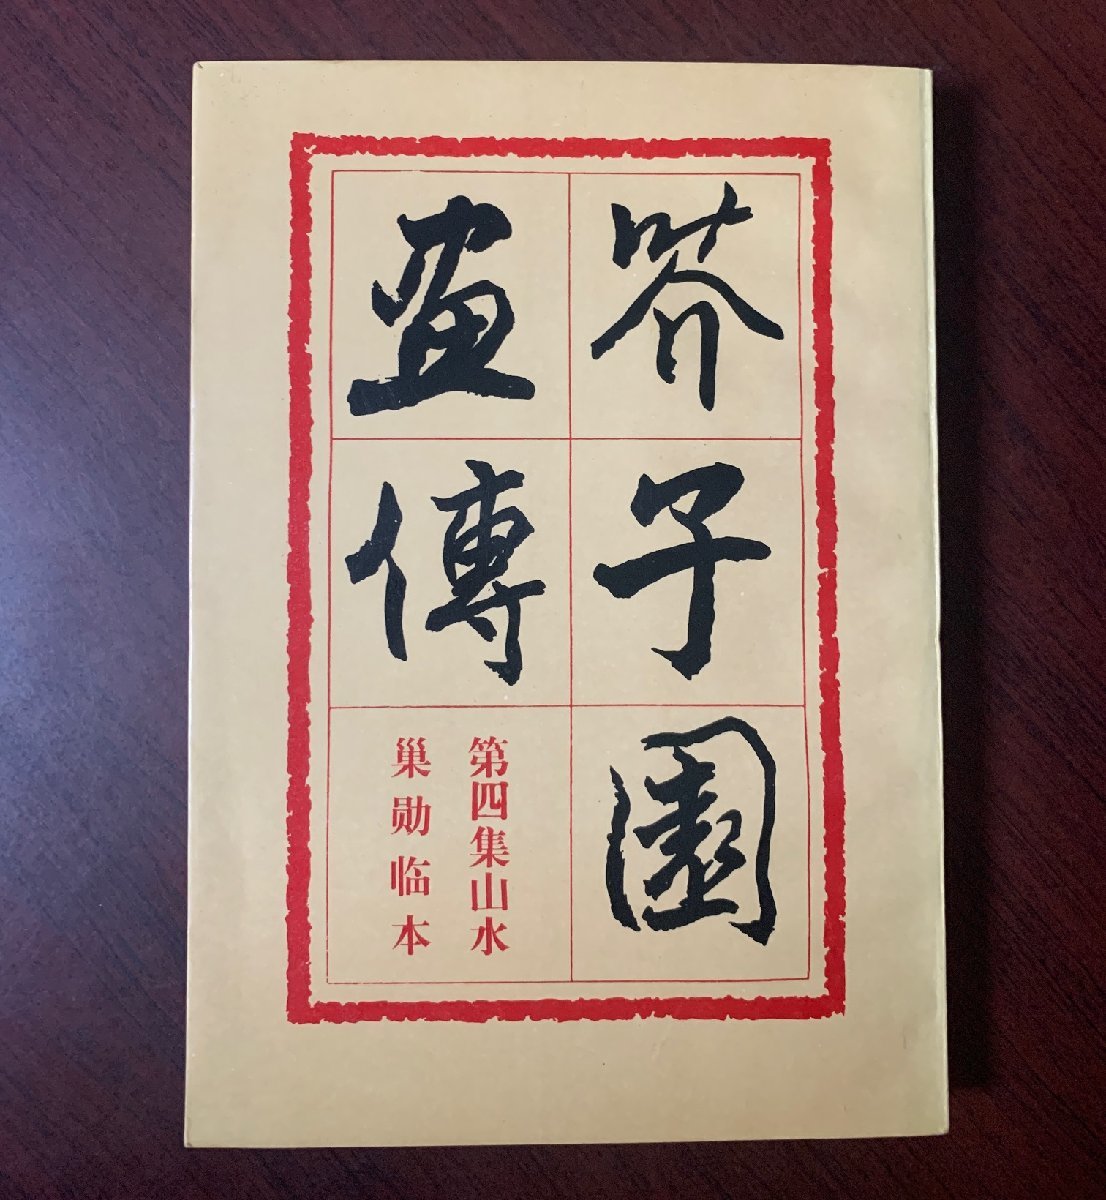 芥子園
畫傳
第四集山水
巢勋临本